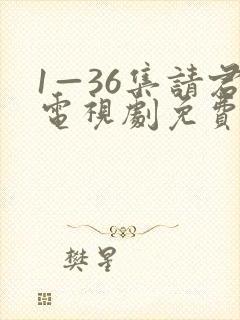 1—36集請君
電視劇免費
樊星